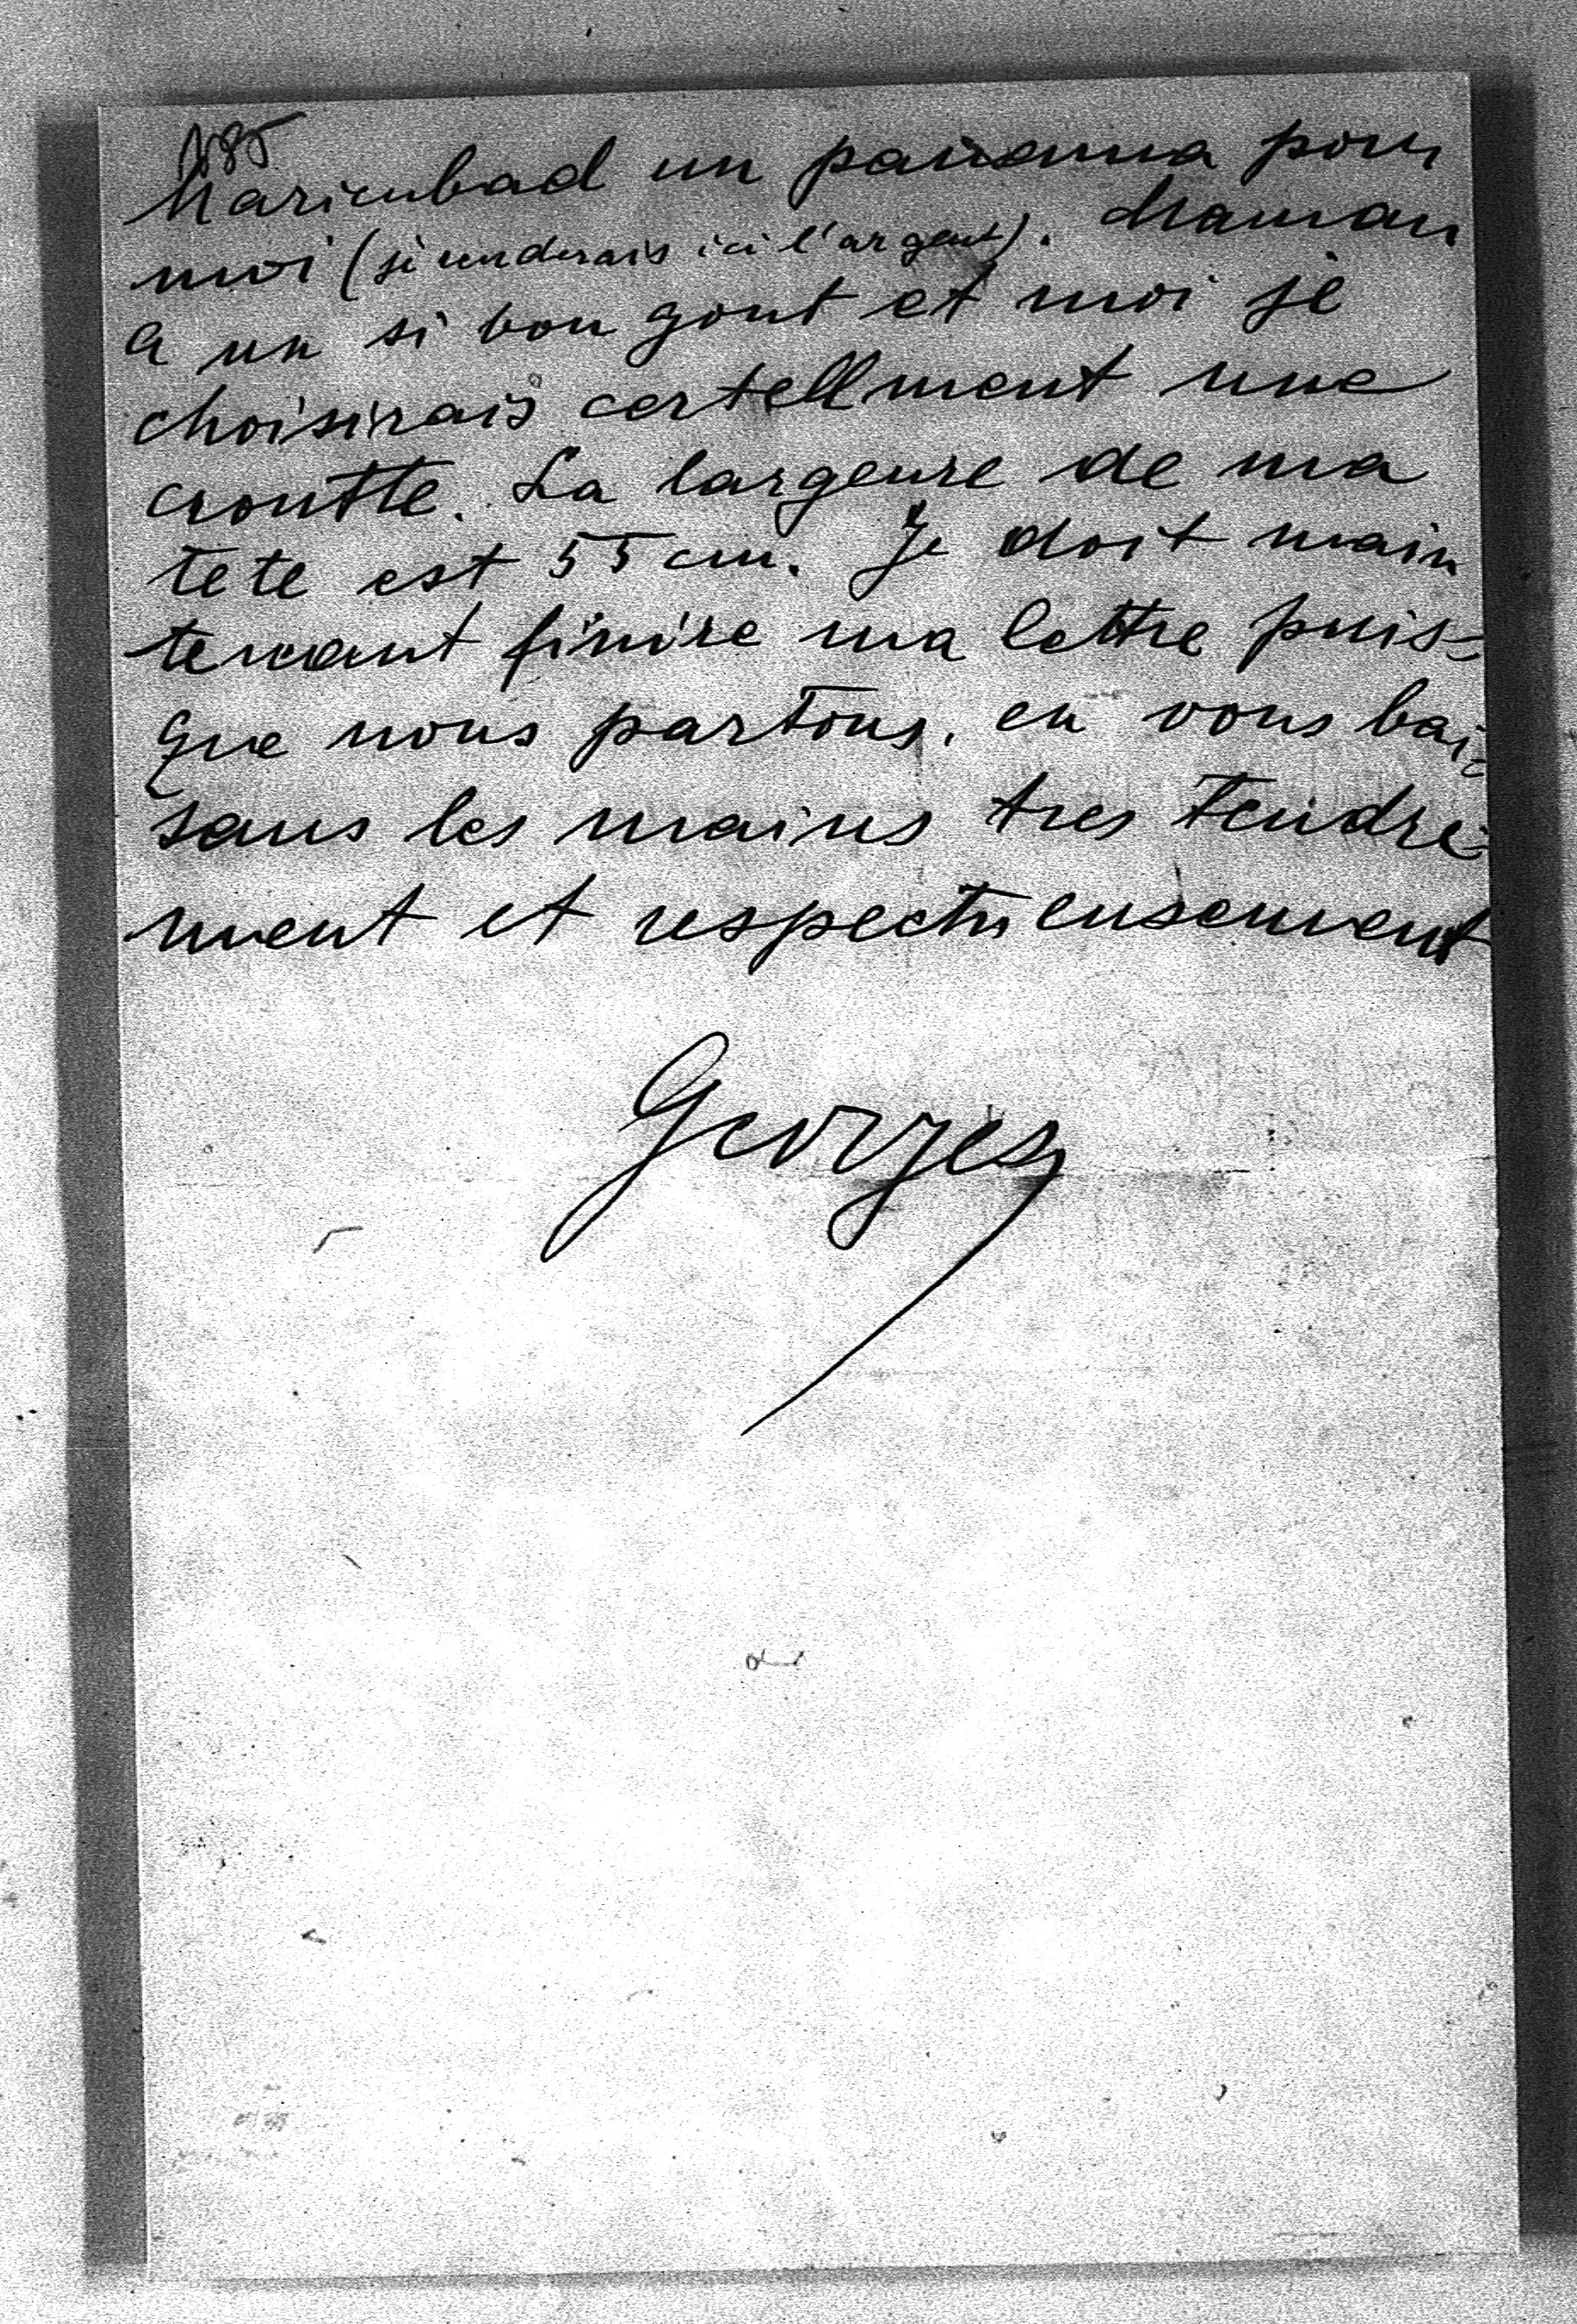 185
Marienbad un panama pour
moi (je renderais ici l'argent). Maman
a un si bon gout et moi je
choisirais certellment une
croutte. La largeure de ma
tete est 55 cm. Je doit main
tenant finire ma lettre puis=
que nous partons, en vous bai=
sans les mains tres tendre=
ment et respectueusement
Georges